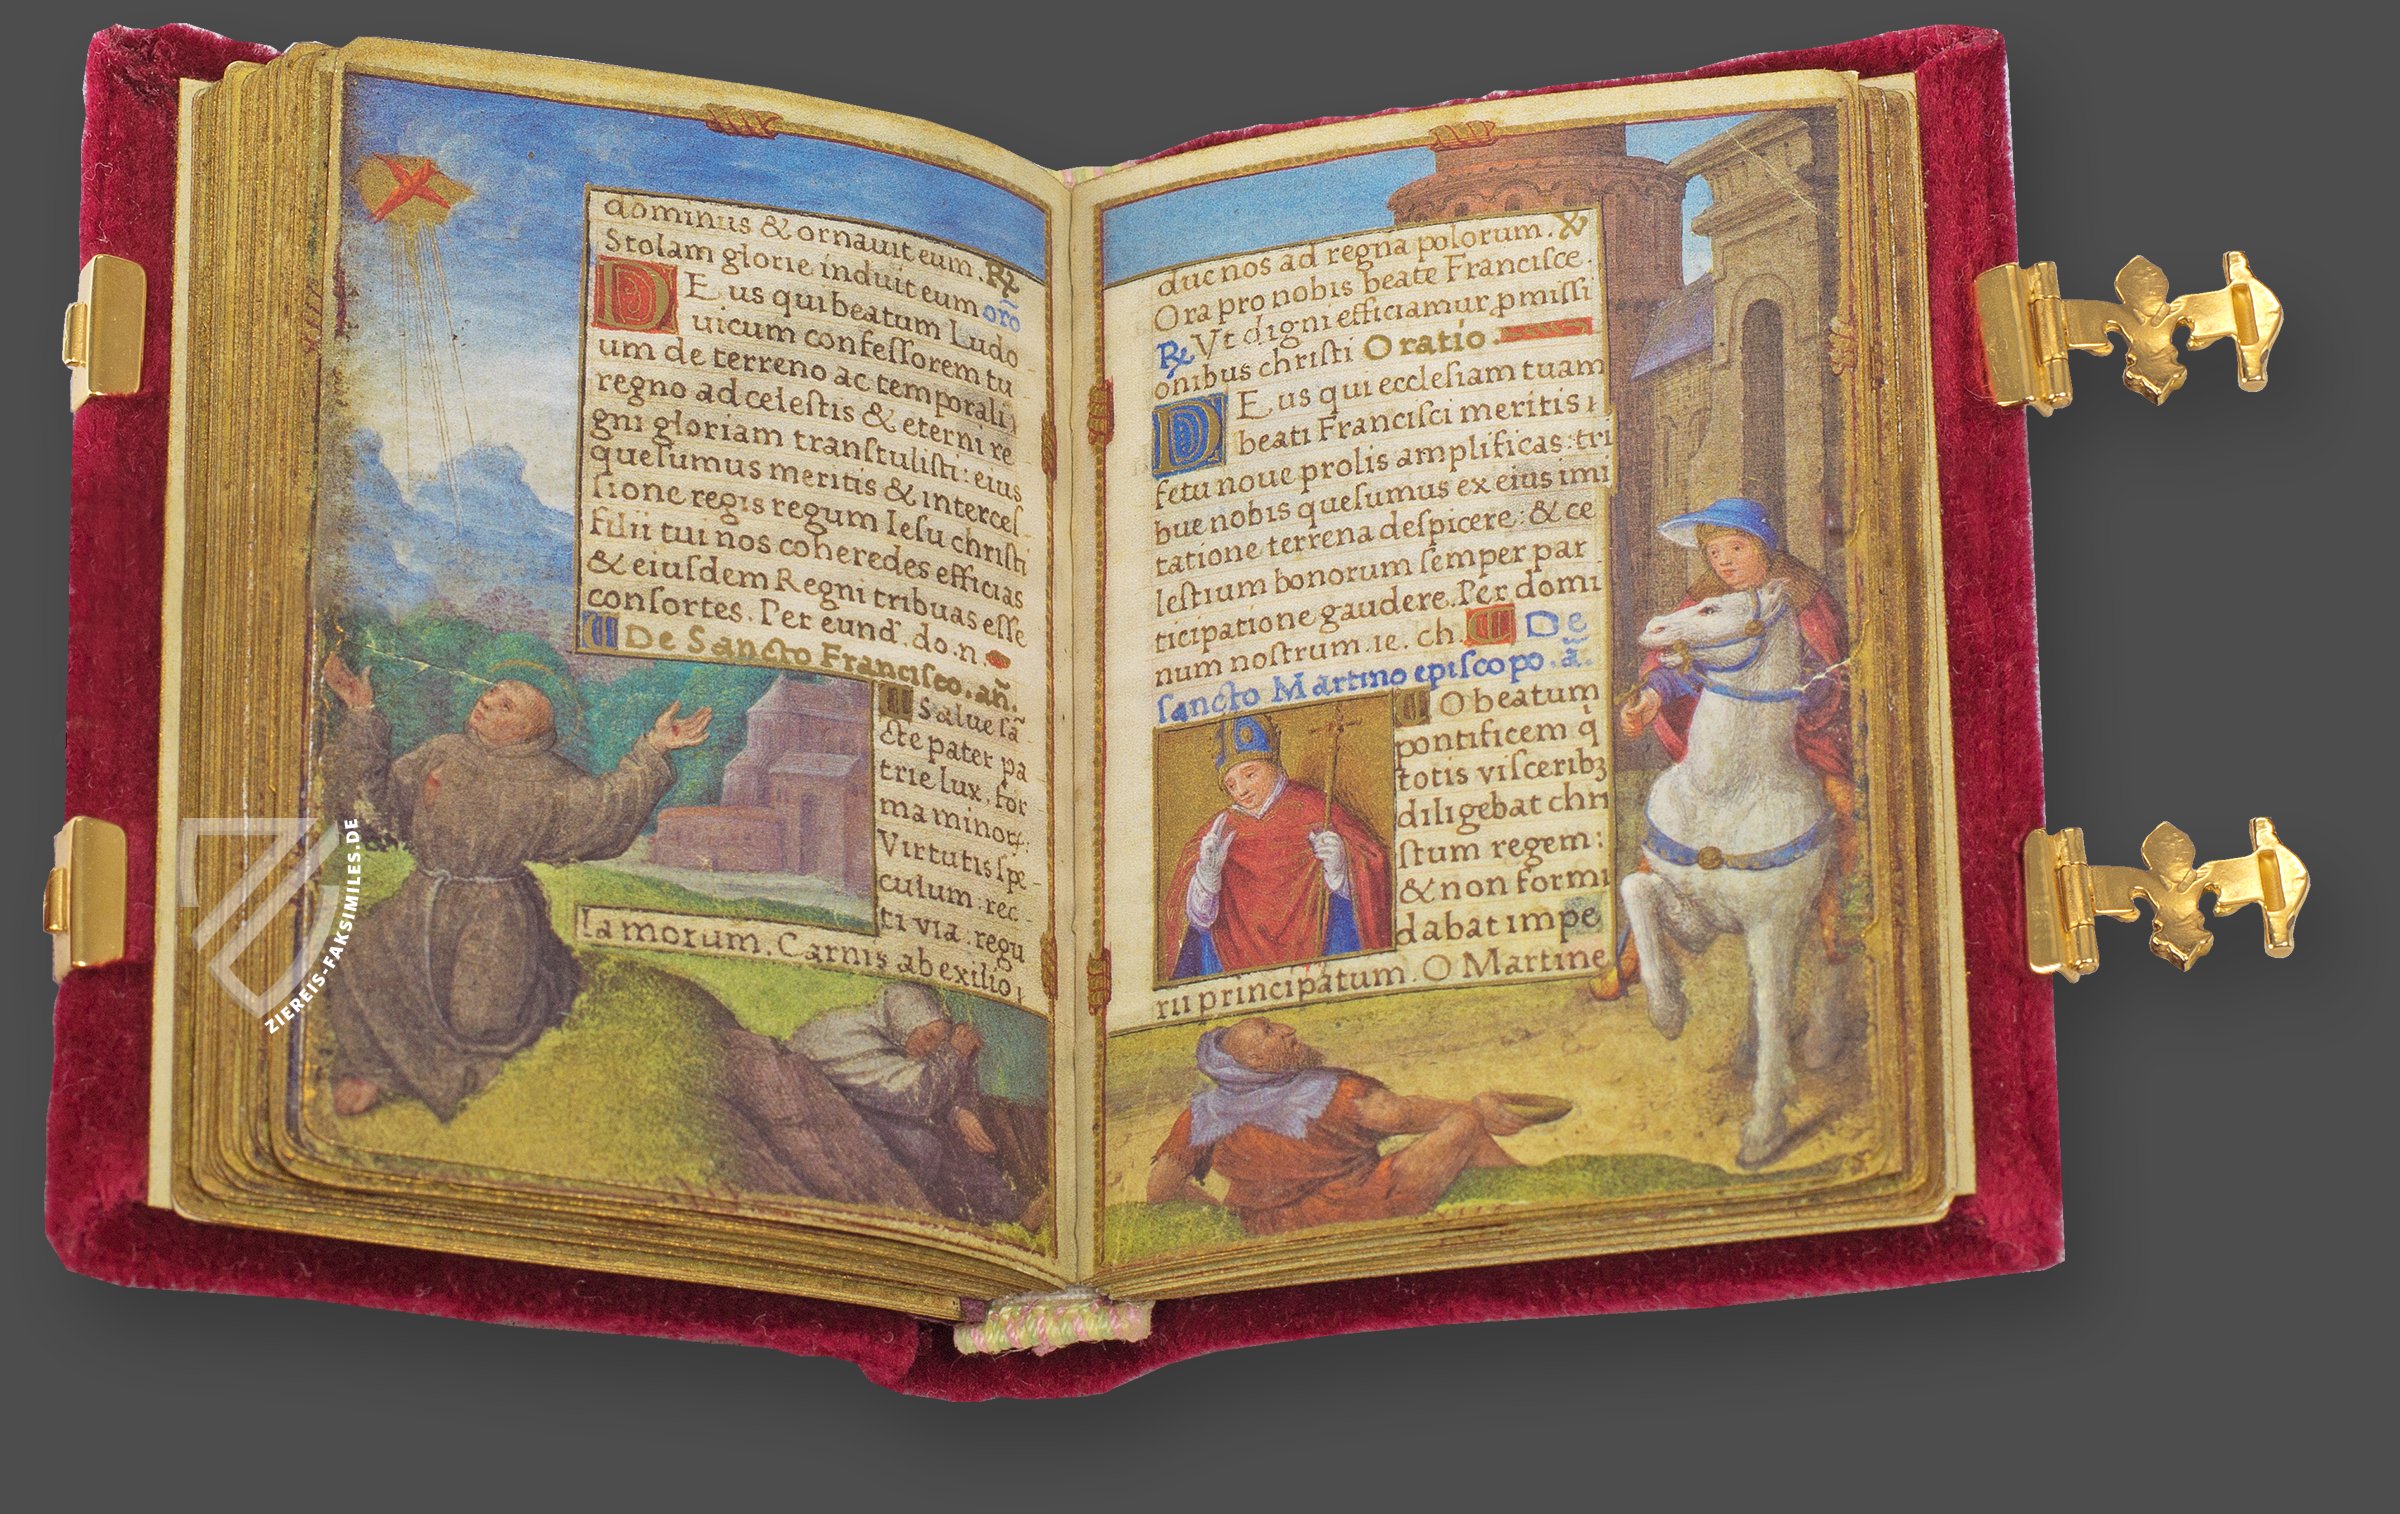 dominus & ornauit eum. ℟
Stolam glorie induit eum oro̅
DEus qui beatum Ludo
uicum confessorem tu
um de terreno ac temporali
regno ad celestis & eterni re
gni gloriam transtulisti: eius
quesumus meritis & interces
sione regis regum Iesu christi
filii tui nos coheredes efficias
& eiusdem Regni tribuas esse
consortes. Per eund̅. do.n.
De Sancto Francisco. an̅.
Salue sa̅
cte pater pa
trie lux, for
ma minoꝝ:
Virtutis spe-
culum, rec-
ti via, regu
la morum. Carnis ab exilio
duc nos ad regna polorum. ℣
Ora pro nobis beate Francisce.
℟ Vt digni efficiamur ꝓmissi
onibus christi Oratio.
DEus qui ecclesiam tuam
beati Francisci meritis
fetu noue prolis amplificas: tri
bue nobis quesumus ex eius imi
tatione terrena despicere: & ce
lestium bonorum semper par
ticipatione gaudere. Per domi
num nostrum. ie. ch. De
sancto Martino episcopo. a̅.
O beatum
pontificem q̇
totis visceribꝫ
diligebat chri
stum regem:
& non formi
dabat impe
rii principatum. O Martine
ZIEREIS-FAKSIMILES.DE